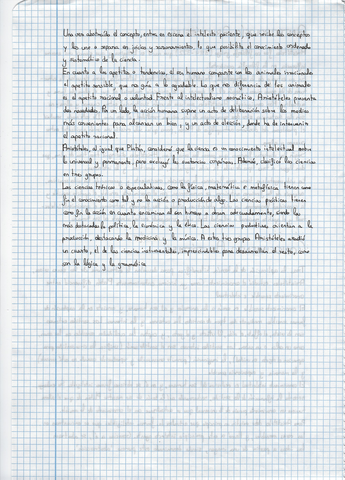 Una vez abstraído el concepto, entra en escena el intelecto paciente, que recibe los conceptos
y los une o separa en juicios y razonamientos, lo que posibilita el conocimiento ordenado
y sistemático de la ciencia.
En cuanto a los apetitos o tendencias, el ser humano comparte con los animales irracionales
el apetito sensible, que nos guía a lo agradable. Lo que nos diferencia de los animales
es el apetito racional o voluntad. Frente al intelectualismo socrático, Aristóteles presenta
dos novedades. Por un lado, la acción humana supone un acto de deliberación sobre los medios
más convenientes para alcanzar un bien, y un acto de elección, donde ha de intervenir
el apetito racional.
Aristóteles, al igual que Platón, considera que la ciencia es un conocimiento intelectual sobre
lo universal y permanente, pero excluyó las sustancias corpóreas. Además, clasificó las ciencias
en tres grupos.
Las ciencias teóricas o especulativas, como la física, matemática o metafísica tienen como
fin el conocimiento como tal y no la acción o producción de algo. Las ciencias prácticas tienen
como fin la acción en cuanto encamina al ser humano a obrar adecuadamente, siendo las
más destacadas la política, la económica y la ética. Las ciencias productivas orientan a la
producción, destacando la medicina y la música. A estos tres grupos Aristóteles añadió
un cuarto, el de las ciencias instrumentales, imprescindibles para desarrollar el resto, como
son la lógica y la gramática.